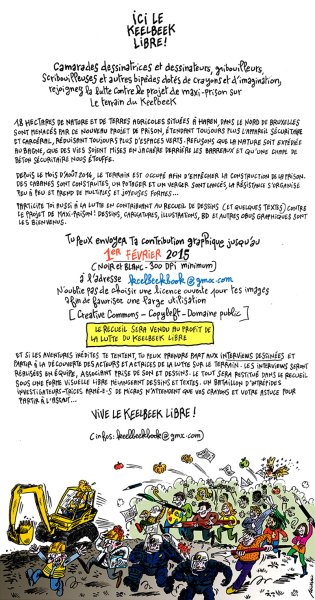 ICI LE
KEELBEEK
LIBRE!
Camarades dessinatrices et dessinateurs, gribouilleurs,
Scribouilleuses et autres bipèdes dotés de crayons et d'imagination,
rejoignez la lutte contre le projet de maxi-prison sur
Le terrain du Keelbeek
18 HECTARES DE NATURE ET DE TERRES AGRICOLES SITUÉES À HAREN, DANS LE NORD DE BRUXELLES
SONT MENACÉS PAR CE NOUVEAU PROJET DE PRISON, ÉTENDANT TOUJOURS PLUS L'APPAREIL SÉCURITAIRE
ET CARCÉRAL, RÉDUISANT TOUJOURS PLUS D'ESPACES VERTS. REFUSONS QUE LA NATURE SOIT EXPÉDIÉE
AU BAGNE, QUE DES VIES SOIENT MISES EN JACHÈRE DERRIÈRE LES BARREAUX ET QU'UNE CHAPE DE
BÉTON SÉCURITAIRE NOUS ÉTOUFFE.
DEPUIS LE MOIS D'AOÛT 2014, LE TERRAIN EST OCCUPÉ AFIN D'EMPÊCHER LA CONSTRUCTION DE LA PRISON.
DES CABANES SONT CONSTRUITES, UN POTAGER ET UN VERGER SONT LANCÉS, LA RÉSISTANCE S'ORGANISE
PEU À PEU ET PREND DE MULTIPLES ET JOYEUSES FORMES...
PARTICIPE TOI AUSSI À LA LUTTE EN CONTRIBUANT AU RECUEIL DE DESSINS (ET QUELQUES TEXTES) CONTRE
LE PROJET DE MAXI-PRISON! DESSINS, CARICATURES, ILLUSTRATIONS, BD ET AUTRES OBUS GRAPHIQUES SONT
LES BIENVENUS.
Tu peux envoyer ta contribution graphique jusqu'au
1ER FÉVRIER 2015
(NOIR et BLANC - 300 DPI minimum)
à l'adresse keelbeekbook@gmx.com
N'oublie pas de choisir une licence ouverte pour tes images
afin de favoriser une large utilisation
[Creative Commons - Copyleft - Domaine public]
LE RECUEIL SERA VENDU AU PROFIT DE
LA LUTTE DU KEELBEEK LIBRE
ET SI LES AVENTURES INÉDITES TE TENTENT, TU PEUX PRENDRE PART AUX INTERVIEWS DESSINÉES ET
PARTIR À LA DÉCOUVERTE DES ACTEURS ET ACTRICES DE LA LUTTE SUR LE TERRAIN. LES INTERVIEWS SERONT
RÉALISÉES EN ÉQUIPE, ASSOCIANT PRISE DE SON ET DESSINS. LE TOUT SERA RESTITUÉ DANS LE RECUEIL
SOUS UNE FORME VISUELLE LIBRE MÉLANGEANT DESSINS ET TEXTES. UN BATAILLON D'INTRÉPIDES
INVESTIGATEURS-TRICES ARMÉ-E-S DE MICROS N'ATTENDENT QUE VOS CRAYONS ET VOTRE ASTUCE POUR
PARTIR À L'ASSAUT...
VIVE LE KEELBEEK LIBRE!
(infos: keelbeekbook@gmx.com)